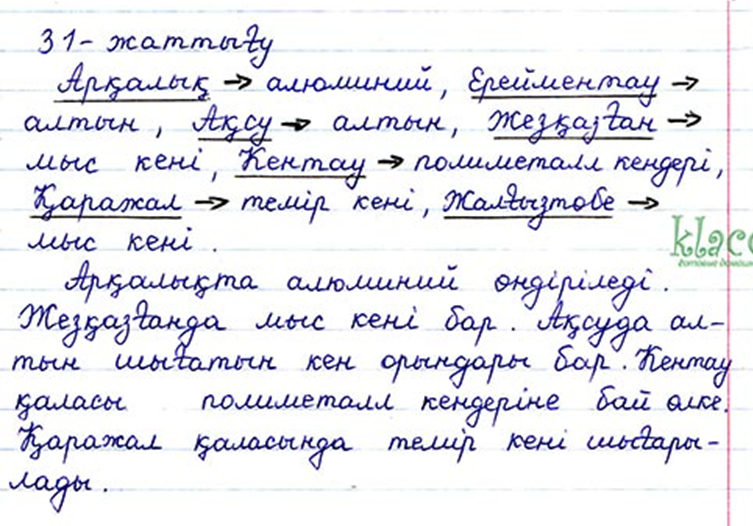 31- жаттығу
Арқалық → алюминий, Ерейментау →
алтын, Ақсу → алтын, Жезқазған →
мыс кені, Кентау → полиметалл кендері,
Қаражал → темір кені, Жалғызтобе →
мыс кені.
Арқалықта алюминий өндіріледі.
Жезқазғанда мыс кені бар. Ақсуда ал-
тын шығатын кен орындары бар. Кентау
қаласы полиметалл кендеріне бай өлке.
Қаражал қаласында темір кені шығары-
лады.